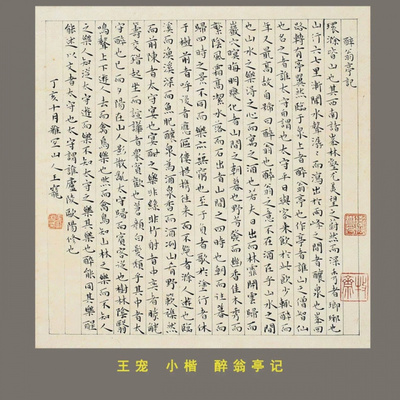 醉翁亭記
環滁皆山也其西南諸峯林壑尤美望之蔚然而深秀者瑯琊也
山行六七里漸聞水聲潺潺而瀉出於兩峰之間者釀泉也峯回
路轉有亭翼然臨于泉上者醉翁亭也作亭者誰山之僧智仙
也名之者誰太守自謂也太守與客來飲於此飲少輒醉而
年又最高故自號曰醉翁也醉翁之意不在酒在乎山水之間
也山水之樂得之心而寓之酒也若夫日出而林霏開雲歸而
巖穴暝晦明變化者山間之朝暮也野芳發而幽香佳木秀而
繁陰風霜高潔水落而石出者山間之四時也朝而往暮而
歸四時之景不同而樂亦無窮也至于負者歌於塗行者休
于樹前者呼後者應傴僂提攜往來而不絕者滁人遊也臨
溪而漁溪深而魚肥釀泉為酒泉香而酒洌山肴野蔌雜然
而前陳者太守宴也宴酣之樂非絲非竹射者中奕者勝觥
籌交錯起坐而諠譁者衆賓懽也蒼顏白髮頹乎其中者太
守醉也已而夕陽在山人影散亂太守歸而賓客從也樹林陰翳
鳴聲上下遊人去而禽鳥樂也然而禽鳥知山林之樂而不知人
之樂人知從太守遊而樂而不知太守之樂其樂也醉能同其樂醒
能述以文者太守也太守謂誰廬陵歐陽修也
丁亥十月雅宜山人王寵
王宠 小楷 醉翁亭记